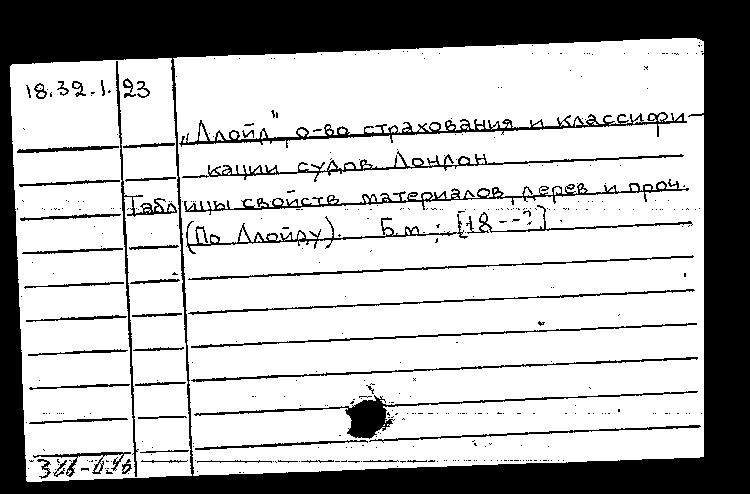 18.32.1.23
„Ллойд", о-во страхования и классифи-
кации судов. Лондон.
Таблицы свойств материалов, дерев и проч.
(По Ллойду). Б.м.; [18--?].